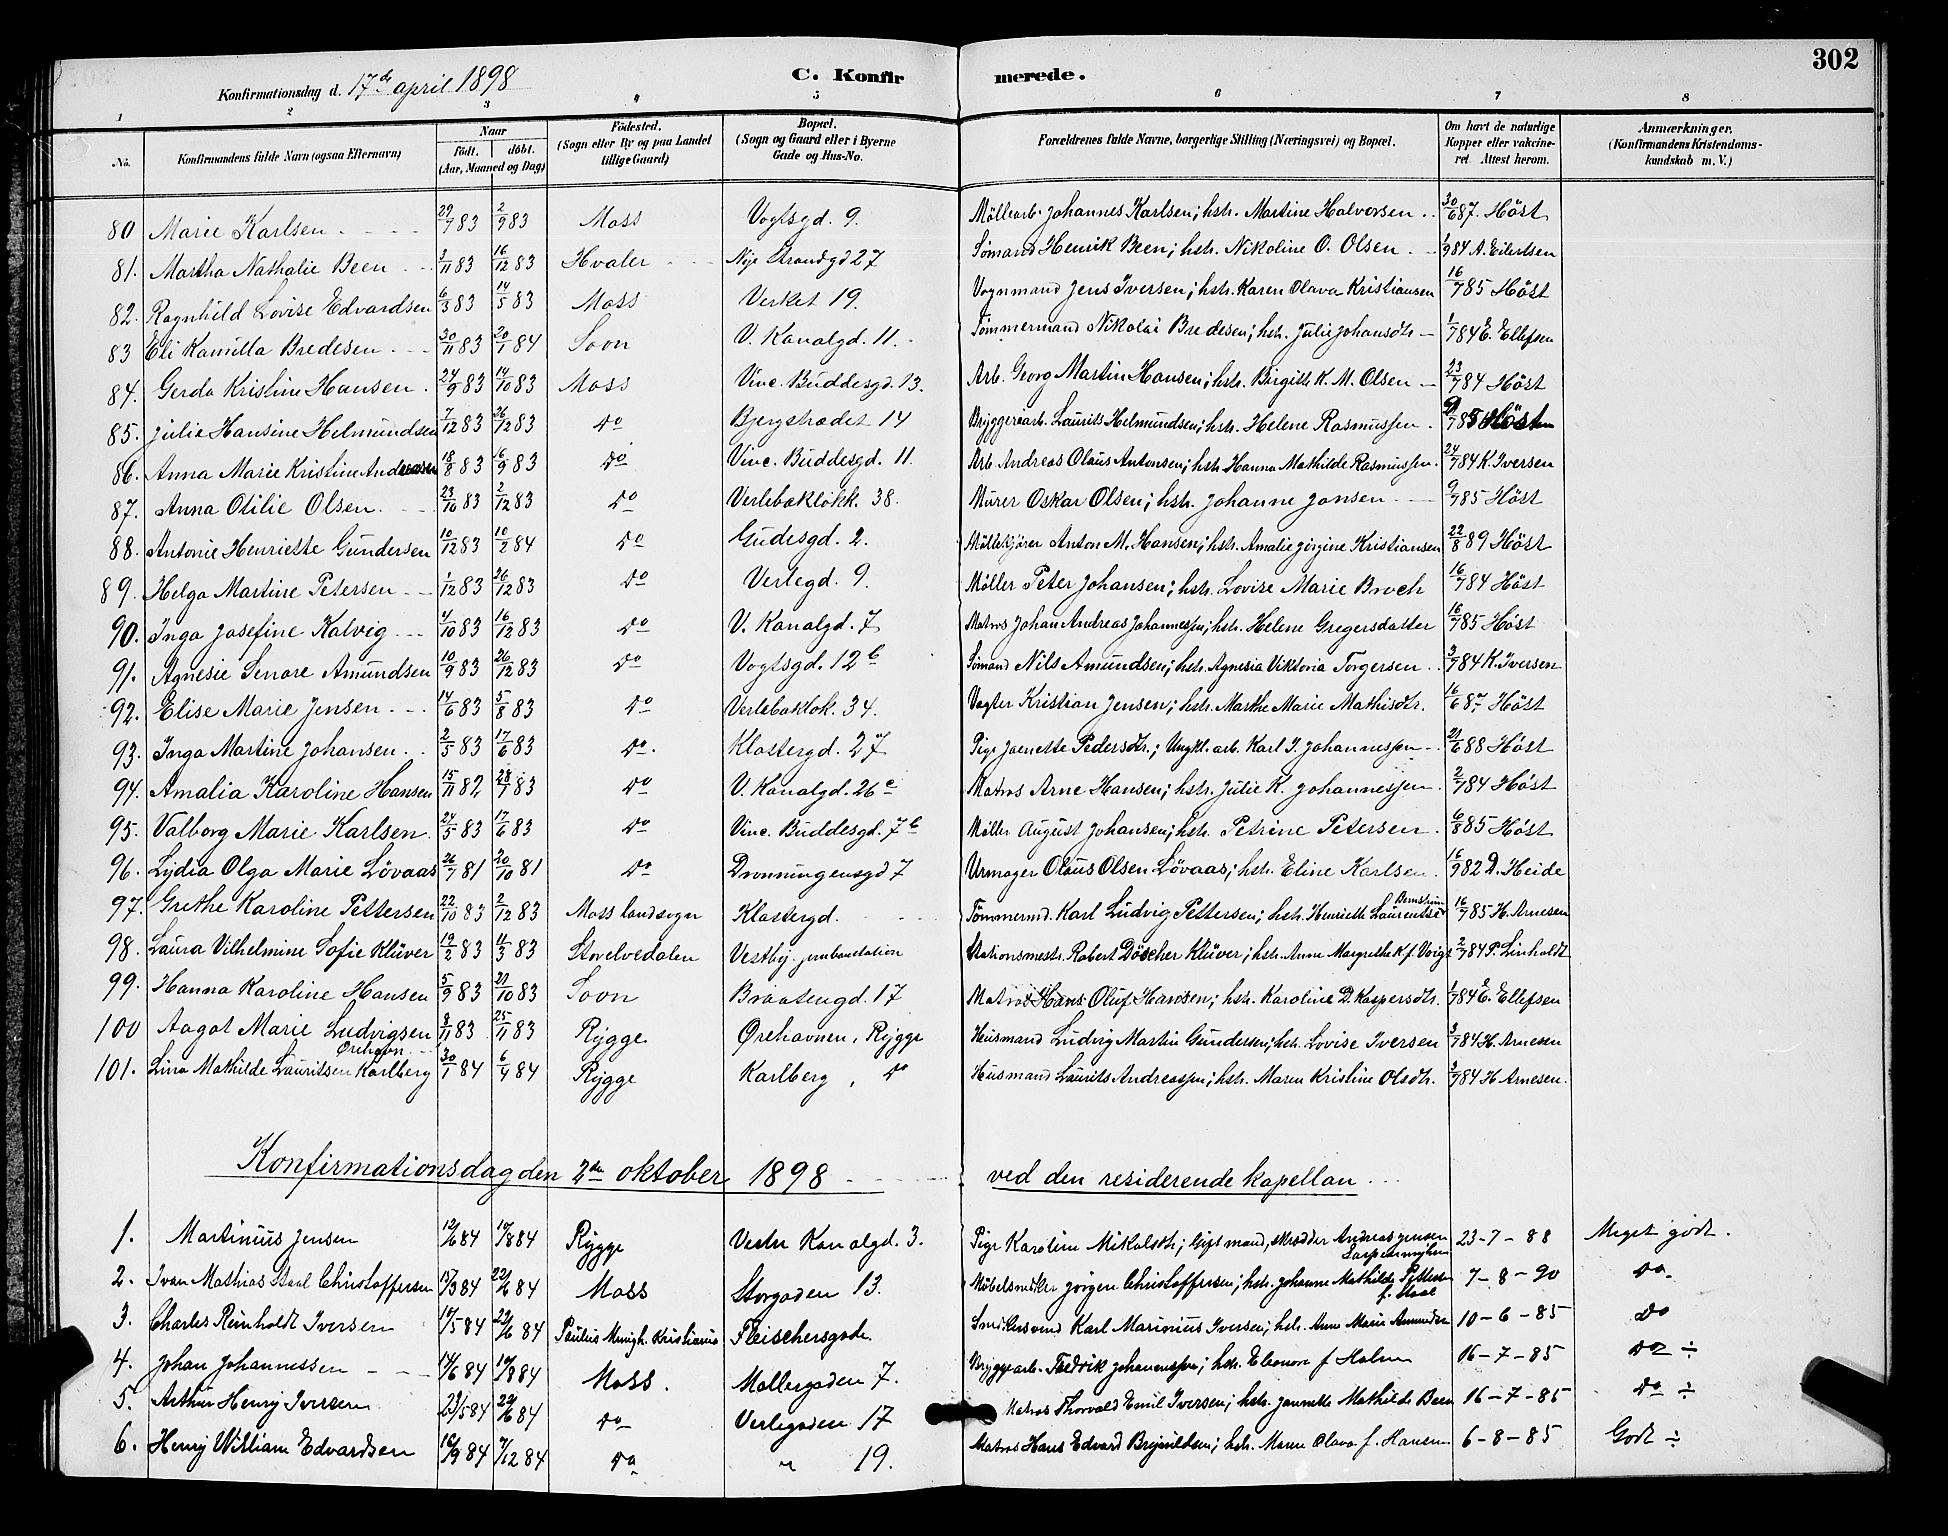 302
Konfirmationsdag d. 17de april 1898 C. Konfirmerede.
1 2 3 4 5 6 7 8
No. Konfirmandens fulde Navn (ogsaa Efternavn) Naar Födt. döbt. (Aar, Maaned og Dag) Födested. (Sogn eller By og paa Landet tillige Gaard) Bopæl. (Sogn og Gaard eller i Byerne Gade og Hus-No. Forældrenes fulde Navne, borgerlige Stilling (Næringsvei) og Bopæl. Om havt de naturlige Kopper eller vakcineret. Attest herom. Anmærkninger. (Konfirmandens Kristendomskundskab m. V.)
80 Marie Karlsen 29/7 83 2/9 83 Moss Vogtsgd. 9. Möllearb. Johannes Karlsen; hstr. Martine Halvorsen 30/6 87. Höst
81. Martha Nathalie Been 3/11 83 16/12 83 Hvaler Nye Strandgd 27 Sømand Henrik Been; hstr. Nikoline O. Olsen 1/9 84 A. Eilertsen
82. Ragnhild Lovise Edvardsen 6/3 83 14/5 83 Moss Verket 19. Vognmand Jens Iversen; hstr. Karen Olava Kristiansen 16/7 85 Höst
83 Eli Kamilla Bredesen 30/11 83 20/1 84 Soon V. Kanalgd. 11. Tömmermand Nikolai Bredesen; hstr. Julie Johansdtr 1/7 84 E. Ellefsen
84. Gerda Kristine Hansen 24/9 83 14/10 83 Moss Vinc. Buddesgd. 13. Arb. Georg Martin Hansen; hstr. Birgitte K. M. Olsen 23/7 84 Höst
85. Julie Hansine Helmundsen 7/12 83 26/12 83 Do Bjergstrædet 14 Bryggeriarb. Laurits Helmundsen; hstr. Helene Rasmussen 9/7 85 Höst
86. Anna Marie Kristine Andersen 18/8 83 16/9 83 Do Vinc. Buddesgd. 11. Arb. Andreas Olaus Antonsen; hstr. Hanna Mathilde Rasmussen. 24/7 84 K. Iversen
87. Anna Otilie Olsen. 23/10 83 2/12 83 Do Verlebakløkk. 38. Murer Oskar Olsen; hstr. Johanne Jonsen 9/7 85 Höst
88. Antonie Henriette Gundersen 10/12 83 10/2 84 Do Gudesgd. 2. Möllekjörer Anton M. Hansen; hstr. Amalie Jörgine Kristiansen 22/8 89 Höst
89. Helga Martine Petersen 1/12 83 26/12 83 Do Verlegd. 9. Möller Peter Johansen; hstr. Lovise Marie Broch 16/7 84 Höst
90. Inga Josefine Kalvig 4/10 83 16/12 83 Do V. Kanalgd. 7 Matros Johan Andreas Johannessen; hstr. Helene Gregersdatter 16/7 85 Höst
91. Agnesie Lenore Amundsen 10/9 83 26/12 83 Do Vogtsgd. 12b Sömand Nils Amundsen; hstr. Agnesia Viktoria Torgersen 3/7 84 K. Iversen
92. Elise Marie Jensen 14/6 83 5/8 83 Do Verlebakløk. 34. Vagter Kristian Jensen; hstr. Marthe Marie Mathisdtr. 16/6 87 Höst
93. Inga Martine Johansen 2/5 83 17/6 83 Do. Klostergd. 27 Pige Jaenette Pedersdtr.; Ungkl. arb. Karl J. Johannessen 21/6 88 Höst
94. Amalia Karoline Hansen 15/11 82 28/7 83 Do V. Kanalgd. 26c Matros Arne Hansen; hstr. Julie K. Johannessen 2/7 84 Höst
95. Valborg Marie Karlsen. 24/5 83 17/6 83 Do Vinc. Buddesgd. 7b Möller August Johansen; hstr. Petrine Petersen 6/8 85 Höst
96. Lydia Olga Marie Lövaas 26/7 81 20/10 81 Do Dronningensgd 7 Urmager Olaus Olsen Lövaas; hstr. Eline Karlsen 16/9 82 D. Heide
97. Grethe Karoline Pettersen 22/10 83 2/12 83 Moss landsogn Klostergd. Tömmermd. Karl Ludvig Pettersen; hstr. Henriette Bernstine Laurentsen 16/7 85 H. Arnesen
98. Laura Vilhelmine Sofie Klüver 19/2 83 11/3 83 Storelvedalen Vestby jernbanstation Stationsmestr. Robert Döscher Klüver; hstr. Anne Margrethe K. f. Voigt 2/7 84 P. Linholdt
99. Hanna Karoline Hansen 5/9 83 21/10 83 Soon Braatengd. 17 Matros Hans Oluf Hansen; hstr. Karoline D. Kaspersdtr. 1/7 84 E. Ellefsen
100 Aagot Marie Ludvigsen Ørehavn 8/11 83 25/11 83 Rygge Ørehavnen, Rygge Husmand Ludvig Martin Gundersen; hstr. Lovise Iversen 3/7 84 H. Arnesen
101. Lina Mathilde Lauritsen Karlberg 30/1 84 6/4 84 Rygge Karlberg, Do Husmand Laurits Andreassen; hstr. Maren Kristine Olsdtr. 3/7 84 H. Arnesen.
Konfirmationsdag den 2den oktober 1898 ved den residerende kapellan
1. Martinius Jensen 12/6 84 10/8 84 Rygge Vestre Kanalgd. 3. Pige Karoline Mikalsdtr; Gift mand, skrædder Andreas Jensen 23-7-88 Meget godt.
2. Ivan Mathias Staal Christoffersen 15/3 84 22/6 84 Moss Storgaden 13. Möbelsnedker Jörgen Christoffersen; hstr. Johanne Mathilde Pettersen f. Staal 7-8-90 Do.
3. Charles Reinholdt Iversen 10/5 84 22/6 84 Paulus Menigh. Kristiania Fleischersgade. Snedkersvend Karl Marinius Iversen; hstr. Anne Marie Amundsen 10-6-85 Do
4. Johan Johannessen 14/6 84 10/8 84 Moss. Møllergaden 7. Bryggearb. Fredrik Johannessen; hstr. Eleonore f Holm 16-7-85 Do ÷
5. Arthur Henry Iversen 23/5 84 29/6 84 Do Verlegaden 17 Matros Thorvald Emil Iversen; hstr. Jannette Mathilde Been 16-7-85 Do ÷
6. Henry William Edvardsen 16/9 84 7/12 84 Do " 19. Matros Hans Edvard Brynildsen; hstr. Maren Olava f. Hansen 6-8-85 Godt ÷